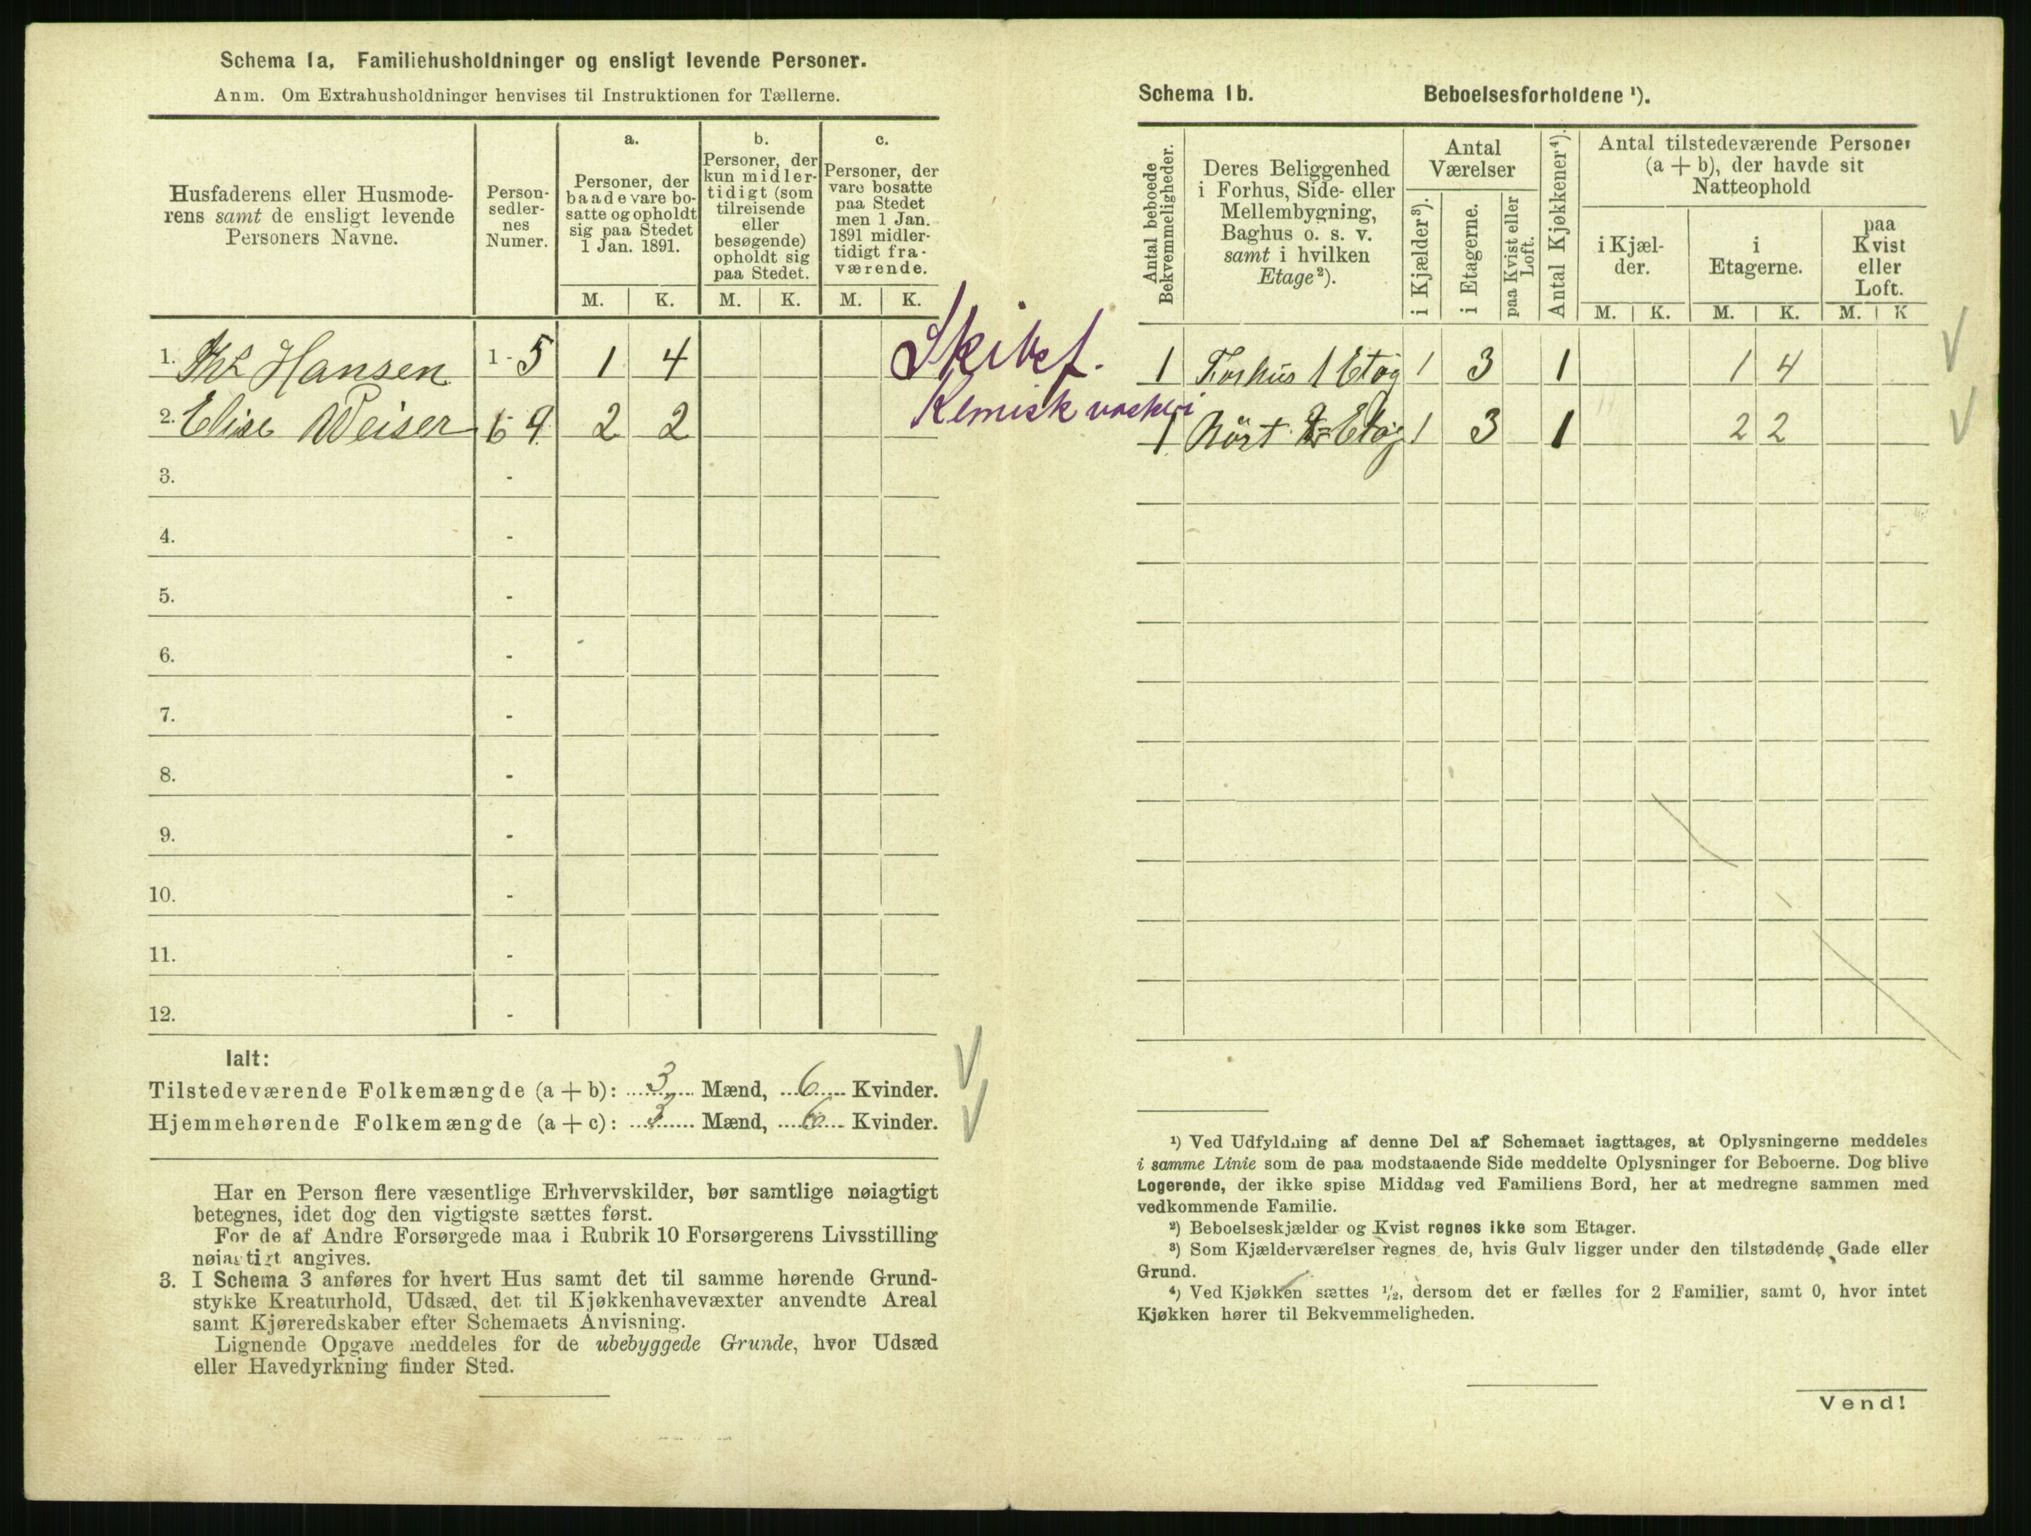 Schema 1a, Familiehusholdninger og ensligt levende Personer.
Anm. Om Extrahusholdninger henvises til Instruktionen for Tællerne.
Husfaderens eller Husmode-
rens samt de ensligt levende
Personers Navne.
Person-
sedler-
nes
Numer.
a.
Personer, der
baade vare bo-
satte og opholdt
sig paa Stedet
1 Jan. 1891.
b.
Personer, der
kun midler-
tidigt (som
tilreisende
eller
besøgende)
opholdt sig
paa Stedet.
c.
Personer, der
vare bosatte
paa Stedet
men 1 Jan.
1891 midler-
tidigt fra-
værende.
M. K. M. K. M. K.
1. Hansen 1 - 5 1 4
2. Elise Weiser 6 - 9 2 2
3. -
4. -
5. -
6. -
7. -
8. -
9. -
10. -
11. -
12. -
Ialt:
Tilstedeværende Folkemængde (a + b): 3 Mænd, 6 Kvinder.
Hjemmehørende Folkemængde (a + c): 3 Mænd, 6 Kvinder.
Har en Person flere væsentlige Erhvervskilder, bør samtlige nøiagtigt
betegnes, idet dog den vigtigste sættes først.
For de af Andre Forsørgede maa i Rubrik 10 Forsørgerens Livsstilling
nøiagtigt angives.
3. I Schema 3 anføres for hvert Hus samt det til samme hørende Grund-
stykke Kreaturhold, Udsæd, det til Kjøkkenhavevæxter anvendte Areal
samt Kjøreredskaber efter Schemaets Anvisning.
Lignende Opgave meddeles for de ubebyggede Grunde, hvor Udsæd
eller Havedyrkning finder Sted.
Skibsf.
Kemisk vaskeri
Schema 1b. Beboelsesforholdene ¹).
Antal beboede
Bekvemmeligheder.
Deres Beliggenhed
i Forhus, Side- eller
Mellembygning,
Baghus o. s. v.
samt i hvilken
Etage²).
Antal
Værelser
i Kjælder³).
i Etagerne.
paa Kvist eller
Loft.
Antal Kjøkkener⁴).
Antal tilstedeværende Personer
(a + b), der havde sit
Natteophold
i Kjæl-
der.
i
Etagerne.
paa
Kvist
eller
Loft.
M. K. M. K. M. K
1 Forhus 1 Etag 1 3 1 1 4
1 2 Etag 1 3 1 2 2
¹) Ved Udfyldning af denne Del af Schemaet iagttages, at Oplysningerne meddeles
i samme Linie som de paa modstaaende Side meddelte Oplysninger for Beboerne. Dog blive
Logerende, der ikke spise Middag ved Familiens Bord, her at medregne sammen med
vedkommende Familie.
²) Beboelseskjælder og Kvist regnes ikke som Etager.
³) Som Kjælderværelser regnes de, hvis Gulv ligger under den tilstødende Gade eller
Grund.
⁴) Ved Kjøkken sættes ½, dersom det er fælles for 2 Familier, samt 0, hvor intet
Kjøkken hører til Bekvemmeligheden.
Vend!